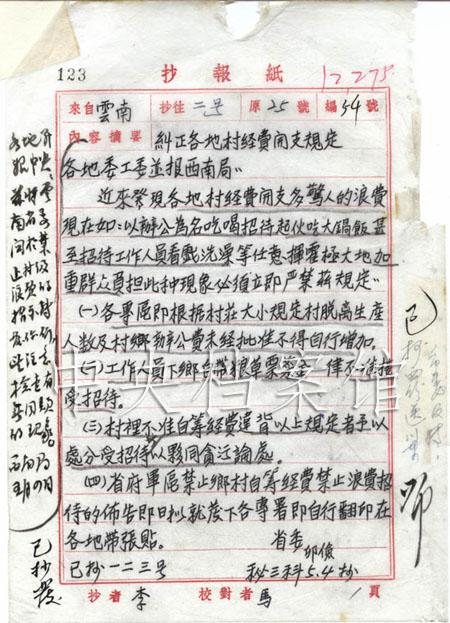 123 抄報紙 12,275
來自雲南 抄往二号 原25號 編54號
內容摘要 糾正各地村經費開支規定
各地委工委並报西南局：
近來發現各地村經費開支多驚人的浪費
現在如：以辦公為名吃喝招待起伙吃大鍋飯甚
至招待工作人員看戲洗澡等任意揮霍極大地加
重群众員担此种現象必須立即严禁茲規定：
(一)各專區即根據村莊大小規定村脫离生產
人数及村鄉辦公費未經批准不得自行增加。
(二)工作人員下鄉自帶粮草票 一律不准接
受招待。
(三)村裡不准自筹經費違背以上規定者予以
處分受招待以夥同貪汚論處。
(四)省府軍區禁止鄉村自筹經費禁止浪費招
待的佈告即日抄就發下各專署即自行翻印在
各地帶張貼。 省委
卯儉
已抄一二三号 秘三科5.4抄
抄者 李 校對者 馬 1頁
各地
报中央
雲
南省委
関於禁
止村级
浪費的
指示
西南局
五月四日
已抄發
已抄
中央档案馆